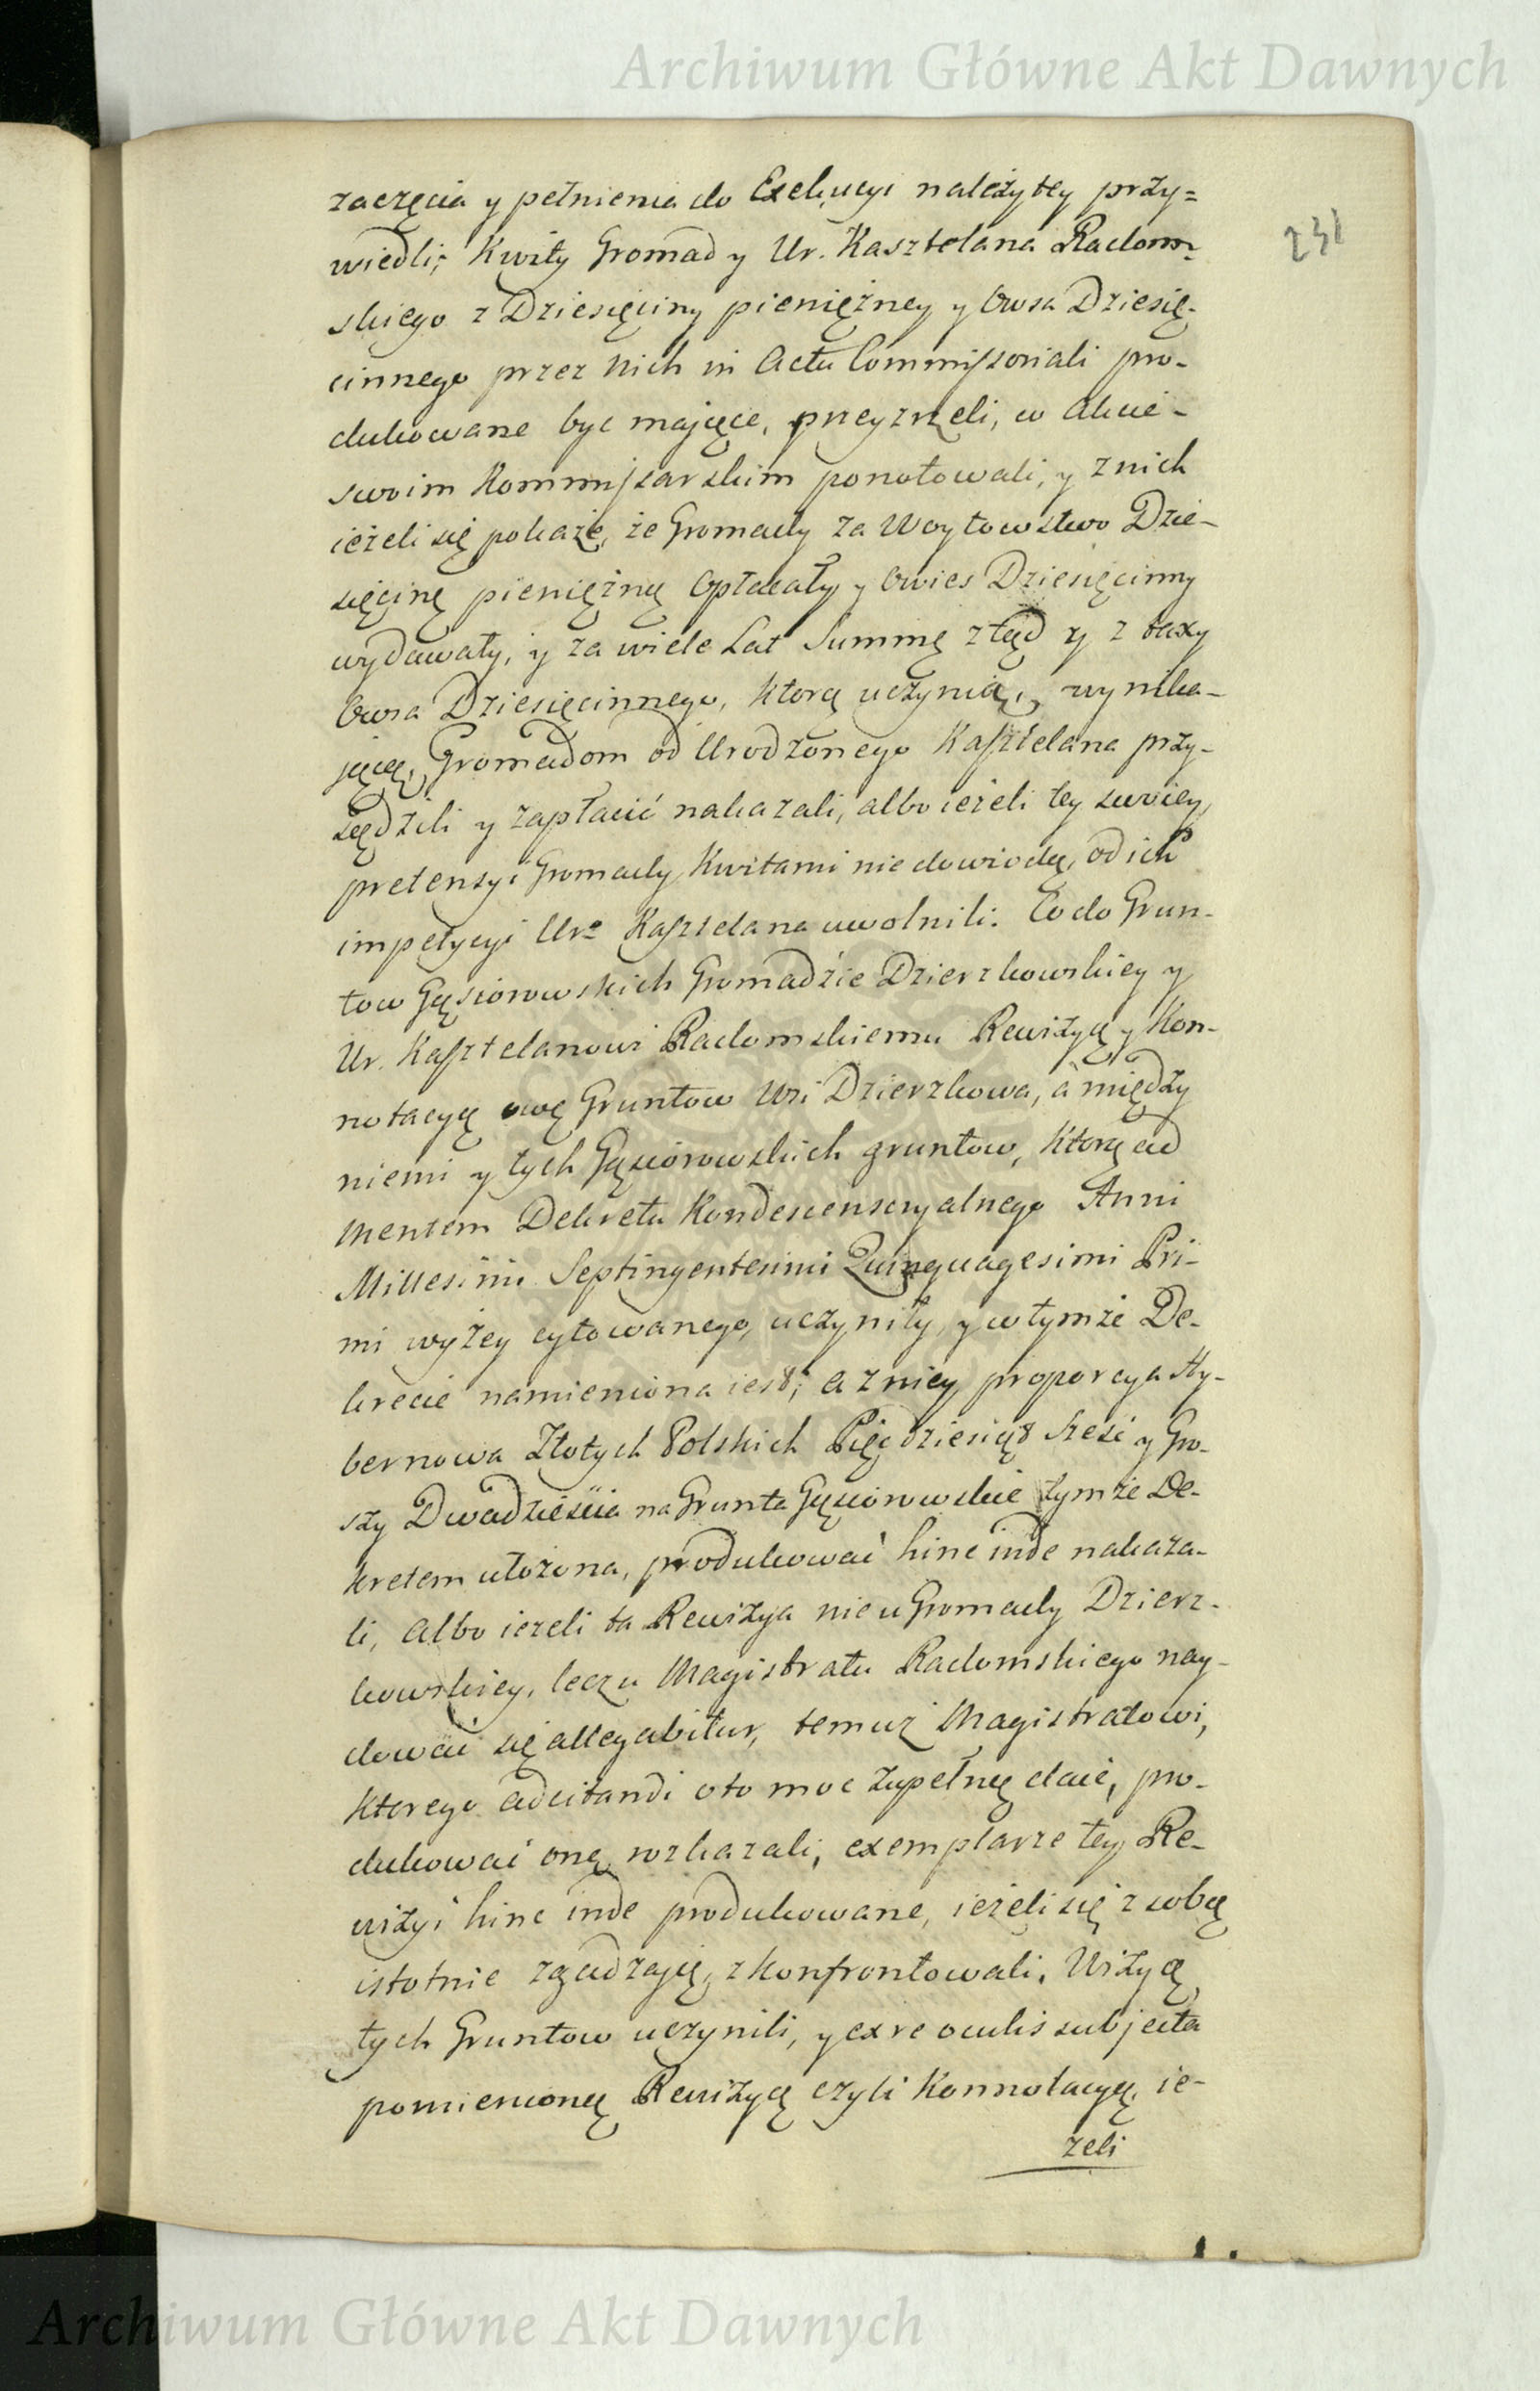 Archiwum Główne Akt Dawnych
231
zaczęcia y pełnienia do Exekucyi należytey przy=
wiedli; Kwity Gromad y Ur. Kasztelana Radom-
skiego z Dziesięciny pieniężney y Owsa Dziesię-
cinnego przez nich in Actu Commissoriali pro-
dukowane być mające, przeyrzeli, w akcie-
swoim Kommissarskim ponotowali, y z nich
ieżeli się pokaże, że Gromady za Woytowstwo Dzie-
sięcinę pieniężną opłacały y Owies Dziesięcinny
wydawały, y za wiele Lat Summę ztąd y z taxy
Owsa Dziesięcinnego, ktorą uczynią, wynika-
jącą, Gromadom od Urodzonego Kasztelana przy-
sądzili y zapłacić nakazali, albo ieżeli tey swoiey
pretensyi Gromady Kwitami nie dowiodą, od ich
impetycyi Ur° Kasztelana uwolnili. Co do Grun-
tow Gąsiorowskich Gromadzie Dzierzkowskiey y
Ur. Kasztelanowi Radomskiemu Rewizyą y Kon-
notacyą owę Gruntow Wsi Dzierzkowa, a między
niemi y tych Gąsiorowskich gruntow, ktorą ad
mentem Dekretu Kondescensoryalnego Anni
Millesimi Septingentesimi Quinquagesimi Pri-
mi wyżey cytowanego, uczyniły, y w tymże De-
krecie namieniona iest; a z niey proporcya Hy-
bernowa Złotych Polskich Pięcdziesiąt Sześć y Gro-
szy Dwadzieścia na Grunta Gąsiorowskie tymże De-
kretem ułożona, produkować hinc inde nakaza-
li, albo ieżeli ta Rewizya nie u Gromady Dzierz-
kowskiey, lecz u Magistratu Radomskiego nay-
dować się allegabitur, temuż Magistratowi,
ktorego adcitandi oto moc zupełną daie, pro-
dukować onę rozkazali, exemplarze tey Re-
wizyi hinc inde produkowane, ieżeli się z sobą
istotnie zgadzają, zkonfrontowali. Wizyą
tych Gruntow uczynili, y ex re oculis subjecta
pomienioną Rewizyą czyli Konnotacyą, ie-
żeli
Archiwum Główne Akt Dawnych